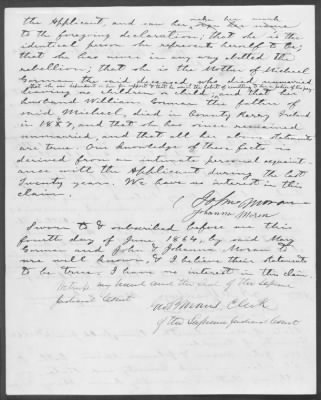 the Applicant, and saw her make her mark
to the foregoing declaration; that she is the
identical person she represents herself to be;
that she has never in any way abetted the
rebellion; that she is the Mother of Michael
Gorman the said deceased, who died unmarried
leaving no children; and that her
husband William Gorman the father of
said Michael, died in County Kerry Ireland
in 1847, and that she has since remained
unmarried, and that all her above statements
are true. Our knowledge of these facts is
derived from an intimate personal acquaint
ance with the Applicant during the last
Twenty years. We have no interest in this
claim.
John Moran
Johanna Moran
Sworn to & subscribed before me this
fourth day of June, 1864, by said Mary
Gorman and John & Johanna Moran to
me well known, & I believe their statements
to be true. I have no interest in this claim.
Witness my hand and the seal of the Supreme
Judicial Court
Clerk
of the Supreme Judicial Court